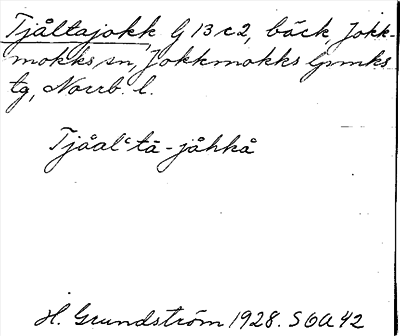 Tjåltajokk G 13 c 2, bäck, Jokk-
mokks sn, Jokkmokks lpmks
tg, Norrb. l.
Tjåalʿtā-jåhkå
H. Grundström 1928. SOA 42